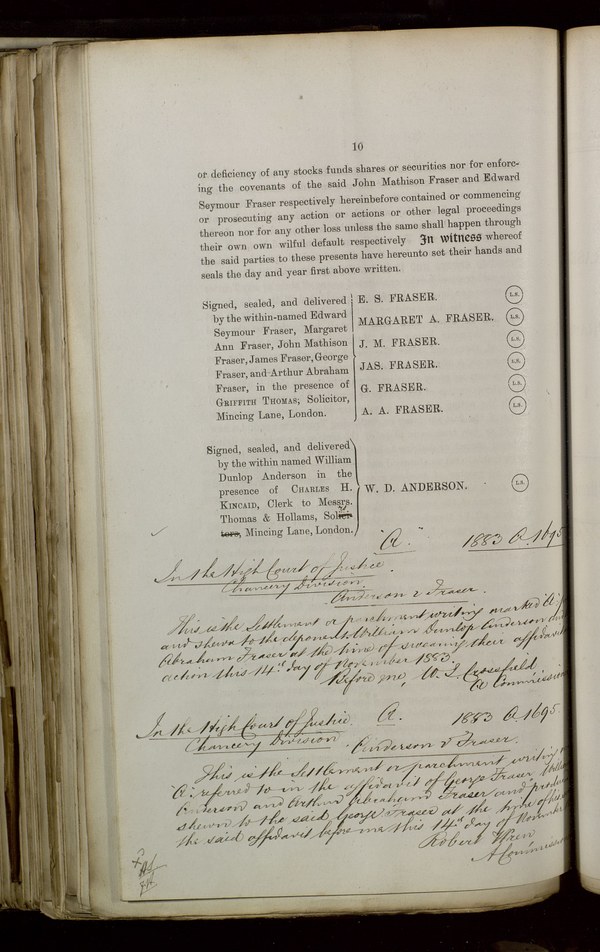 10
or deficiency of any stocks funds shares or securities nor for enforc-
ing the covenants of the said John Mathison Fraser and Edward
Seymour Fraser respectively hereinbefore contained or commencing
or prosecuting any action or actions or other legal proceedings
thereon nor for any other loss unless the same shall happen through
their own own wilful default respectively In witness whereof
the said parties to these presents have hereunto set their hands and
seals the day and year first above written.
Signed, sealed, and delivered
by the within-named Edward
Seymour Fraser, Margaret
Ann Fraser, John Mathison
Fraser, James Fraser, George
Fraser, and Arthur Abraham
Fraser, in the presence of
GRIFFITH THOMAS, Solicitor,
Mincing Lane, London.
E. S. FRASER. L.S.
MARGARET A. FRASER. L.S.
J. M. FRASER. L.S.
JAS. FRASER. L.S.
G. FRASER. L.S.
A. A. FRASER. L.S.
Signed, sealed, and delivered
by the within named William
Dunlop Anderson in the
presence of CHARLES H.
KINCAID, Clerk to Messrs.
Thomas & Hollams, Solici-
tors, Mincing Lane, London.
W. D. ANDERSON. L.S.
"A." 1883 A. 1695
In the High Court of Justice.
Chancery Division.
Anderson v Fraser.
This is the Settlement or parchment writing marked A
and shewn to the deponents William Dunlop Anderson and
Abraham Fraser at the time of swearing their affidavit
action this 14th day of November 1883.
Before me, W. S.
A Commissio
In the High Court of Justice. A. 1883 A. 1695.
Chancery Division. Anderson v Fraser.
This is the Settlement or parchment writing
A. referred to in the affidavit of George Fraser
Anderson and Arthur Abraham Fraser and produ
shewn to the said George Fraser at the time of his
the said affidavit before me this 14th day of Novemb
Robert Wren
A Commissio